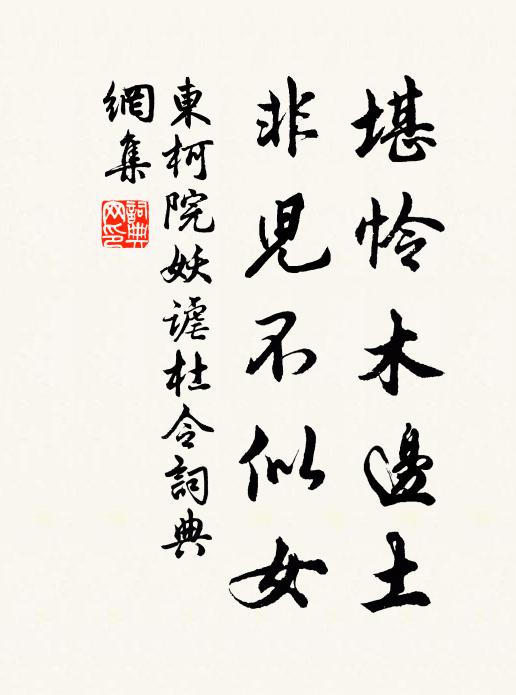 堪怜木邊土
非児不似女
東柯院妖謔杜令詞典
網集
詞典
网印